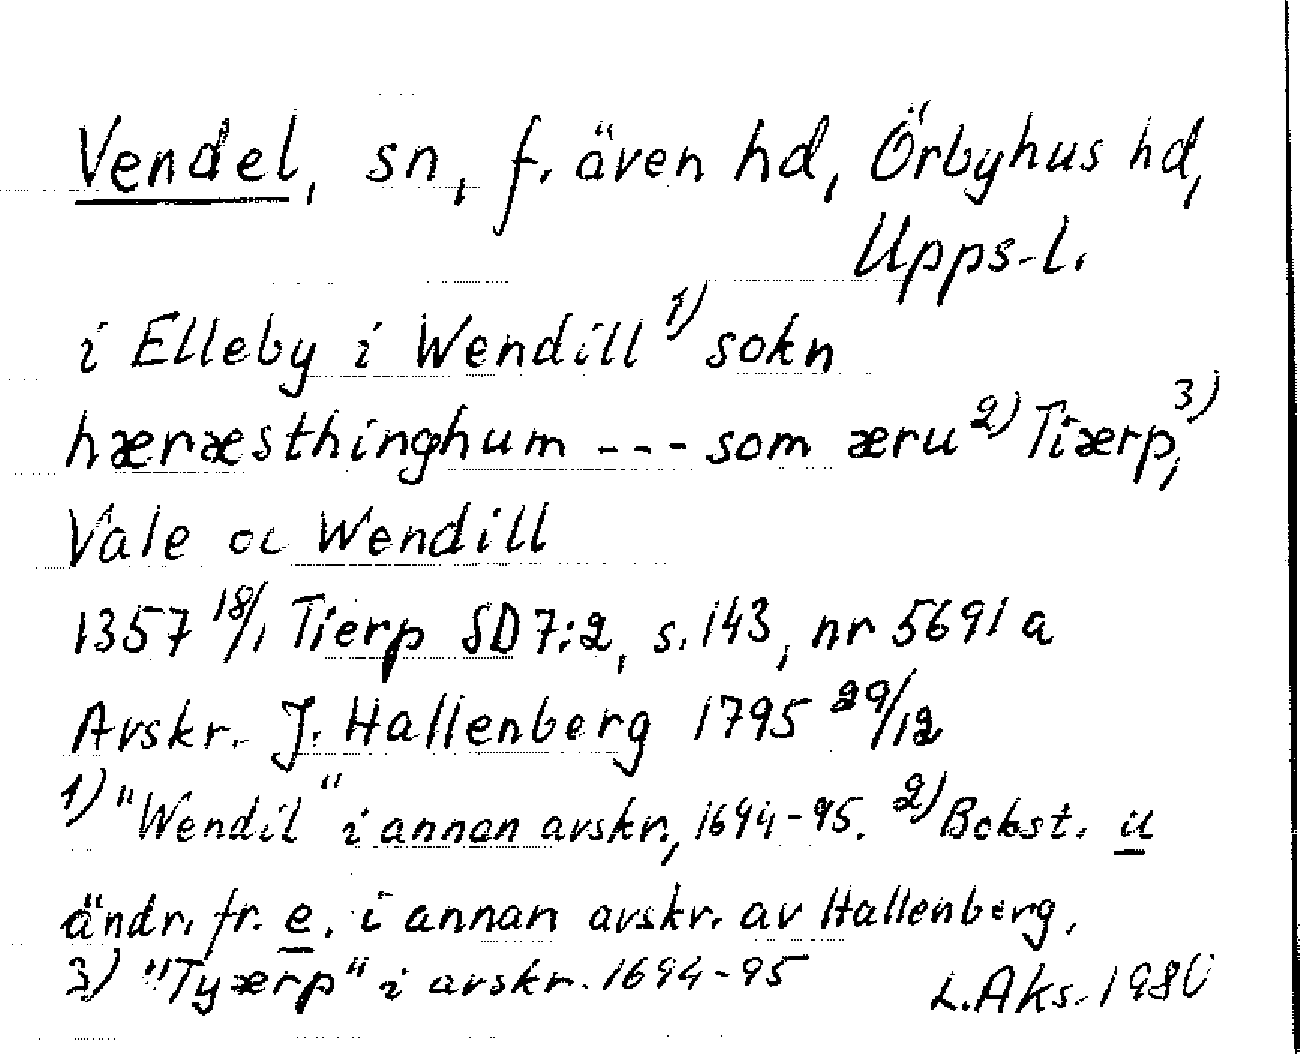 Vendel, sn, f. även hd, Örbyhus hd,
Upps-l.
i Elleby i Wendill 1) sokn
hæræsthinghum --- som æru 2) Tiærp, 3)
Vale oc Wendill
1357 18/1 Tierp SD 7:2, s. 143, nr 5691 a
Avskr. J. Hallenberg 1795 29/12
1) "Wendil" i annan avskr, 1694-95. 2) Bokst. u
ändr. fr. e. i annan avskr. av Hallenberg.
3) "Tyærp" i avskr. 1694-95
L. Aks. 1980